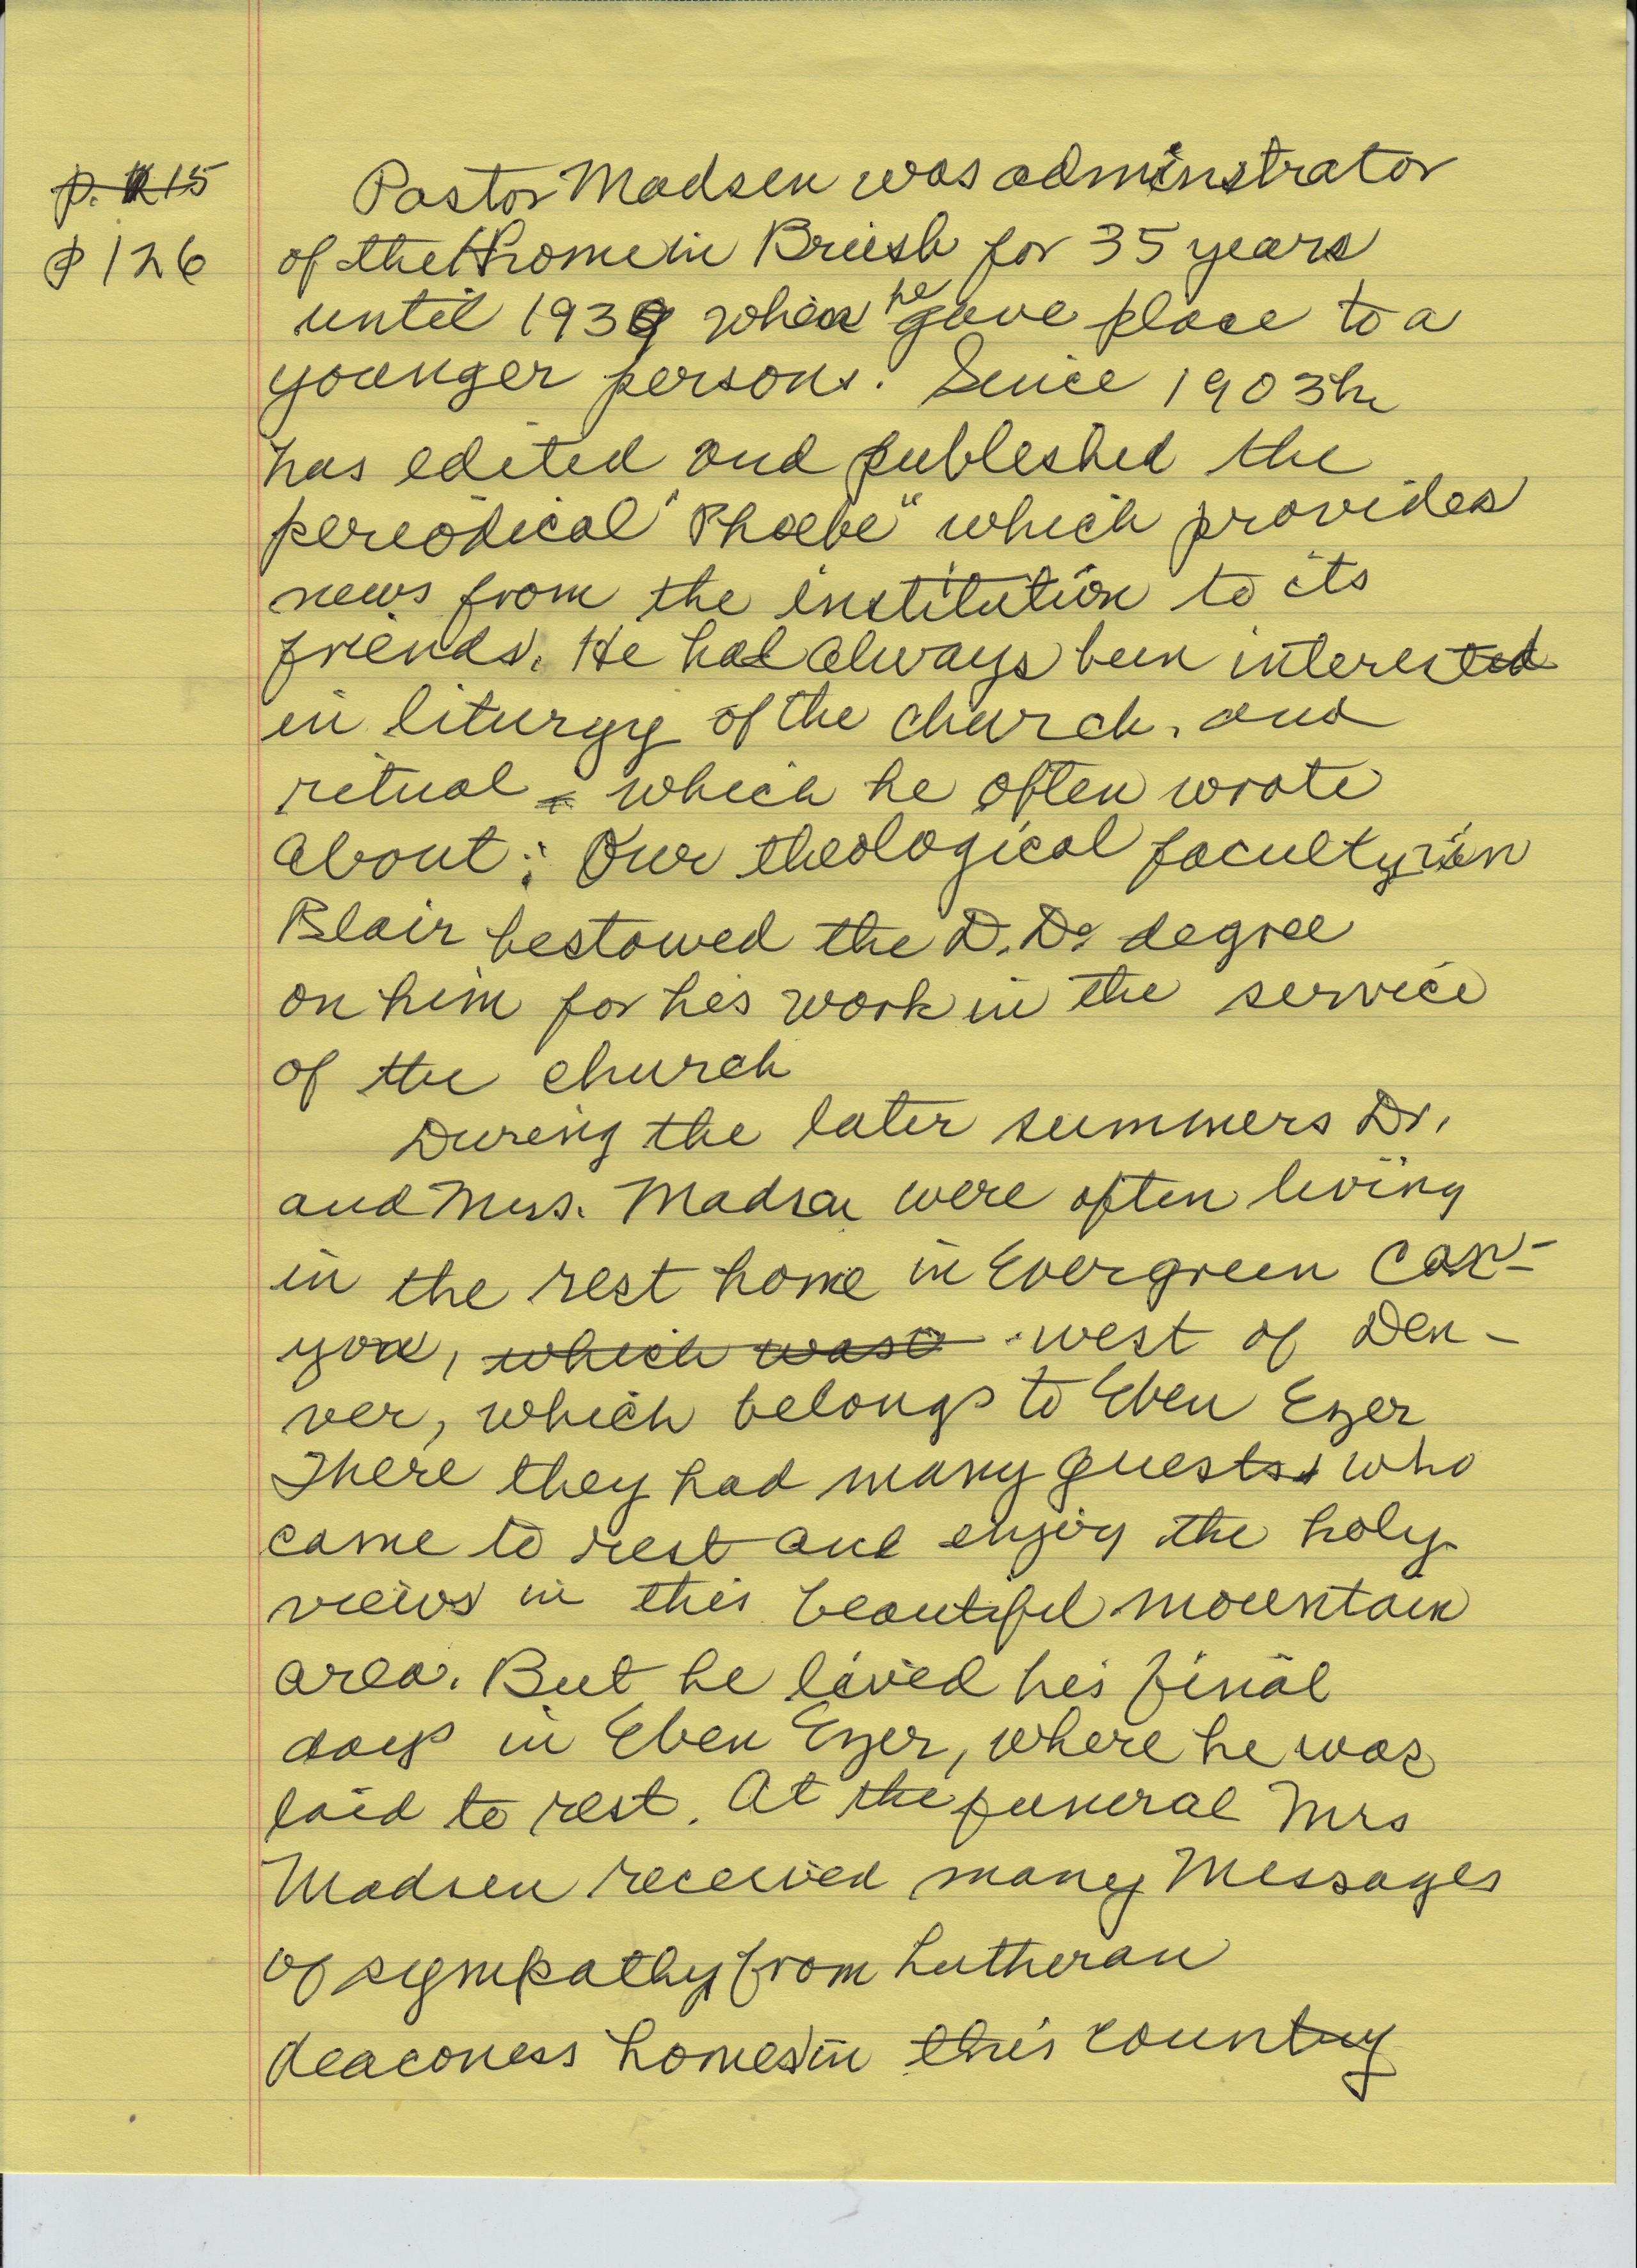 p. 115
p 126
Pastor Madsen was adminstrator
of the Home in Brush for 35 years
until 1939 when he gave place to a
younger persons. Since 1903 he
has edited and published the
periodical "Phoebe" which provides
news from the institution to its
friends. He had always been interested
in liturgy of the church, and
ritual which he often wrote
about. Our theological faculty in
Blair bestowed the D.D. degree
on him for his work in the service
of the church
During the later summers Dr.
and Mrs. Madsen were often living
in the rest home in Evergreen Can-
yon, which was west of Den-
ver, which belongs to Eben Ezer
There they had many guests who
came to rest and enjoy the holy
views in this beautiful mountain
area. But he lived his final
days in Eben Ezer, where he was
laid to rest. At the funeral Mrs
Madsen received many messages
of sympathy from Lutheran
deaconess homes in this country